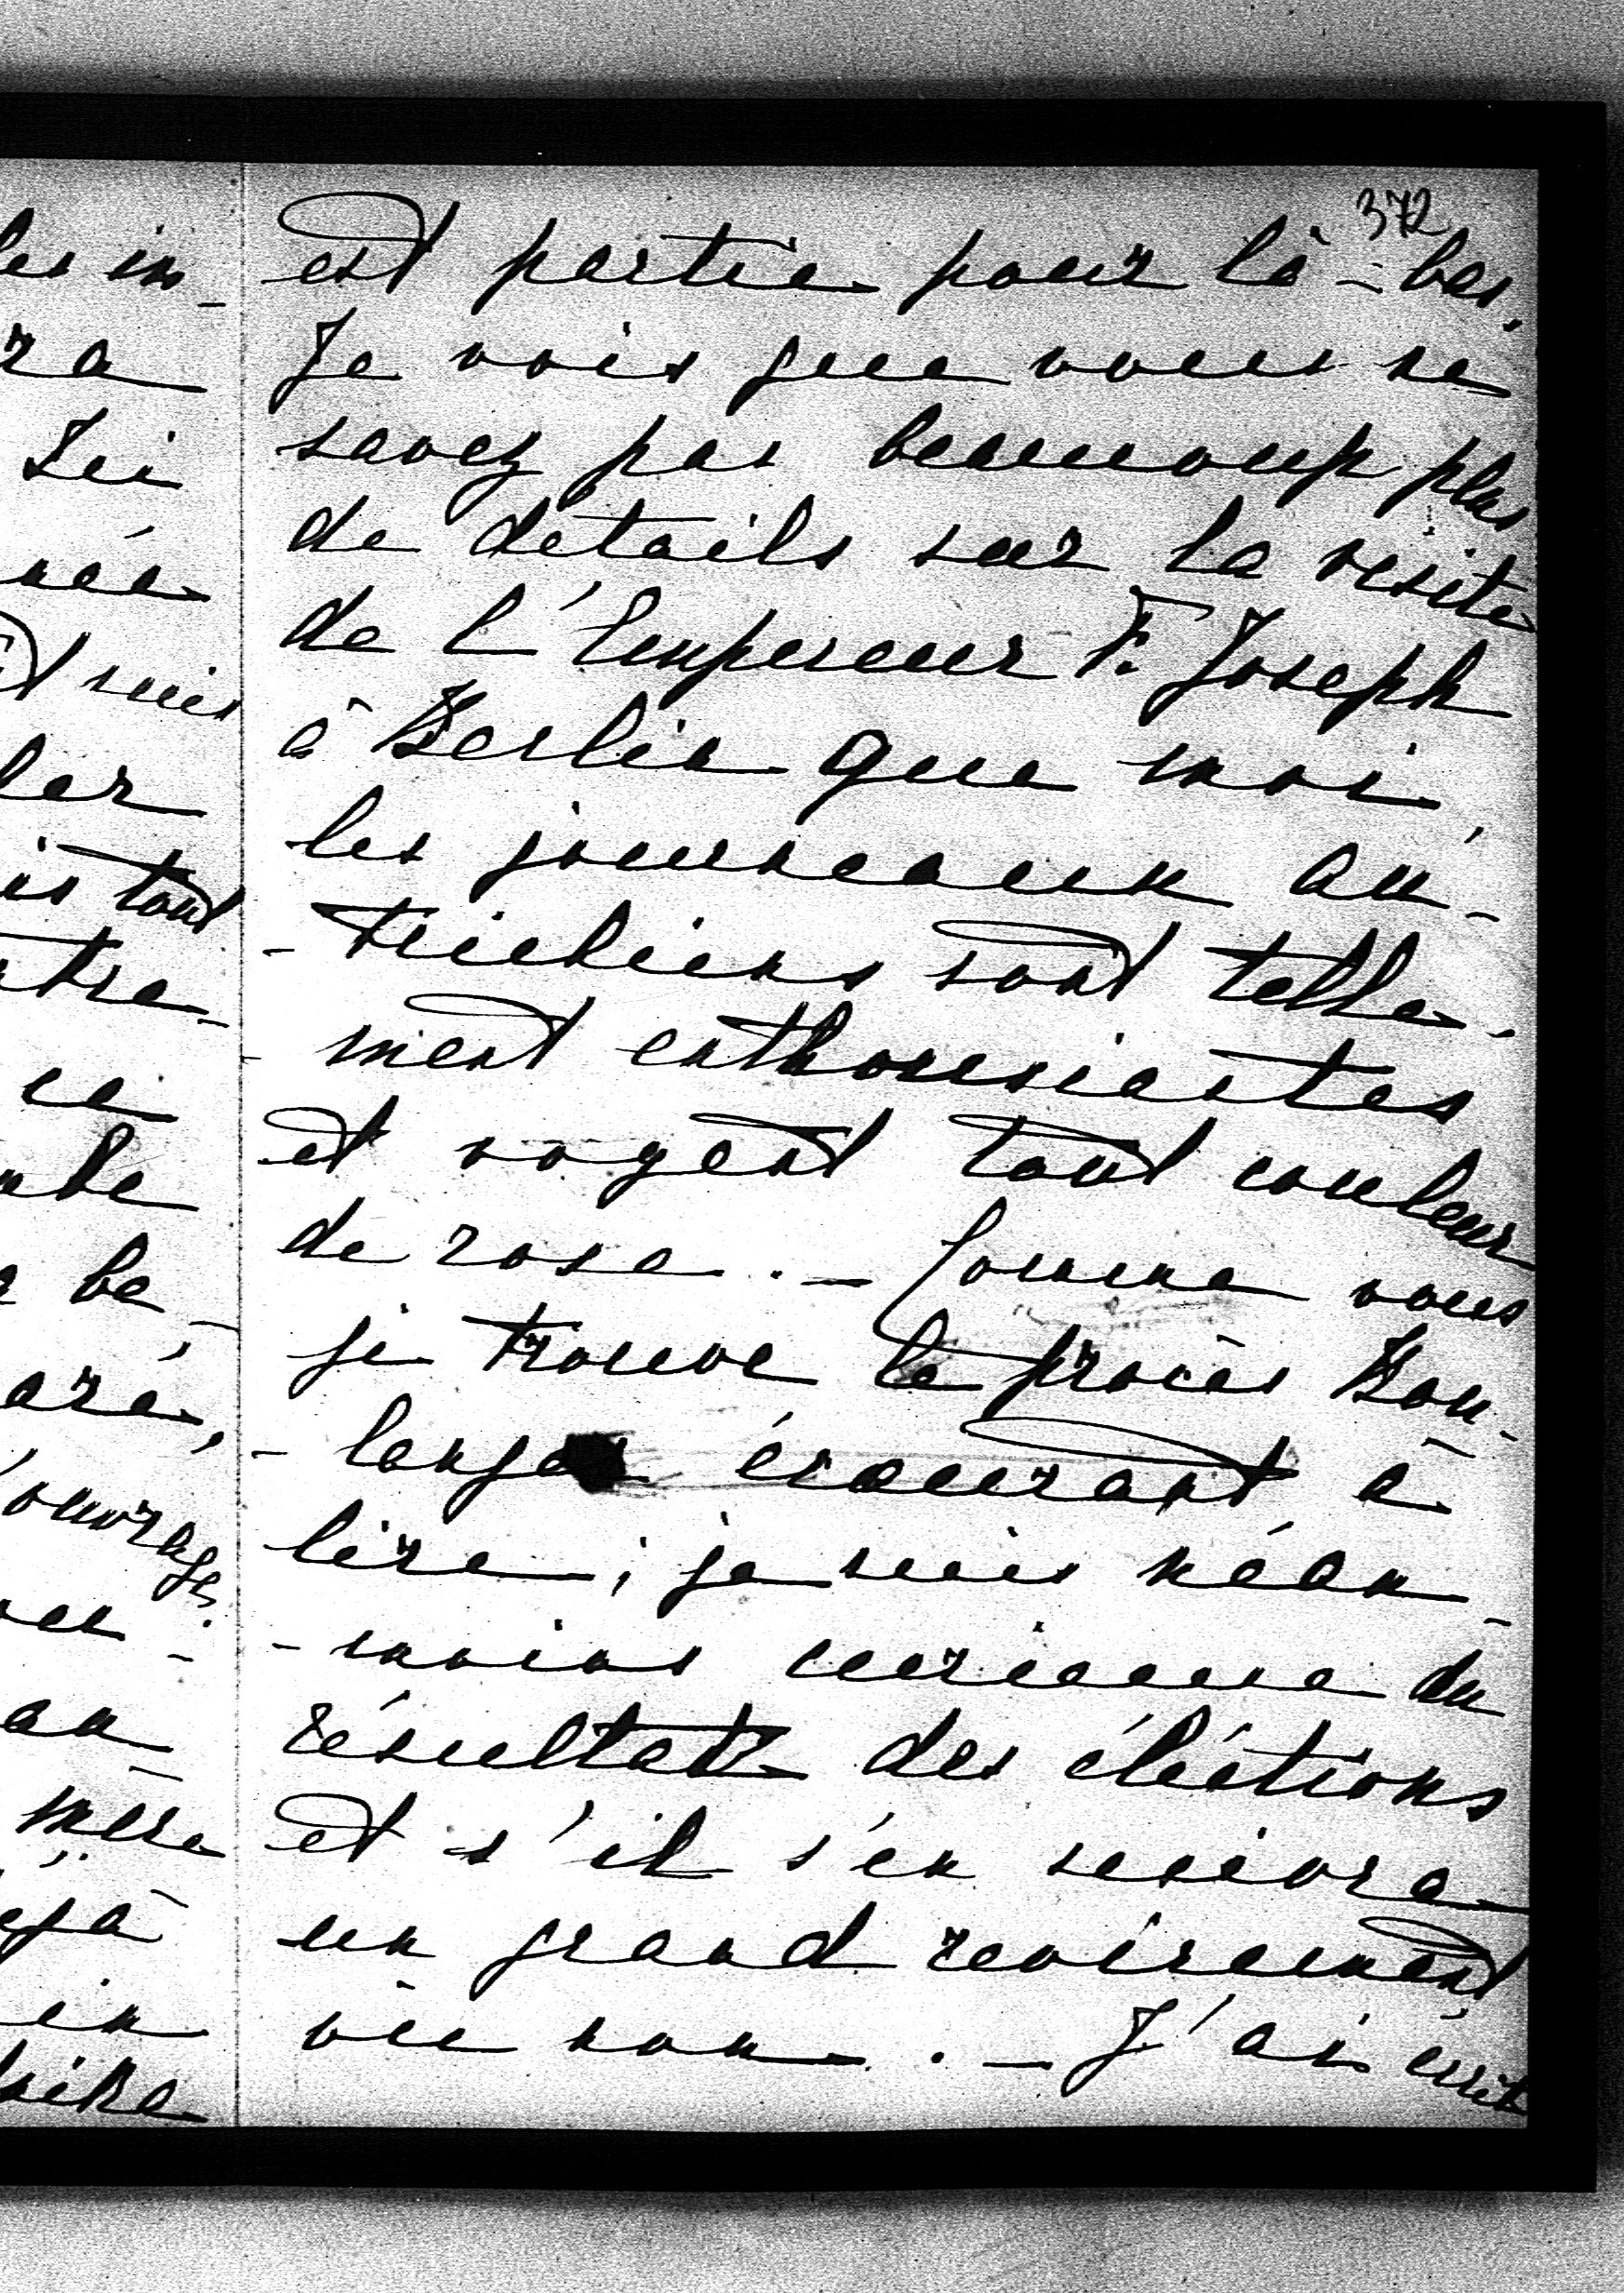 372
est partie pour là-bas.
Je vois que vous ne
savez pas beaucoup plus
de détails sur la visite
de l'Empereur F. Joseph
à Berlin que moi,
les journeaux au-
-trichiens sont telle-
-ment enthousiastes
et voyent tout couleur
de rose. — Comme vous
je trouve le procès Bou-
-langer écœurant à
lire; je suis néan-
-moins curieuse du
résultat des éléctions
et s'il s'en suivra
un grand revirement
ou non. — J'ai écrit
les in-
ra
née
suis
ler
tout
ntre-
ce
be-
l'ouvrage
mère